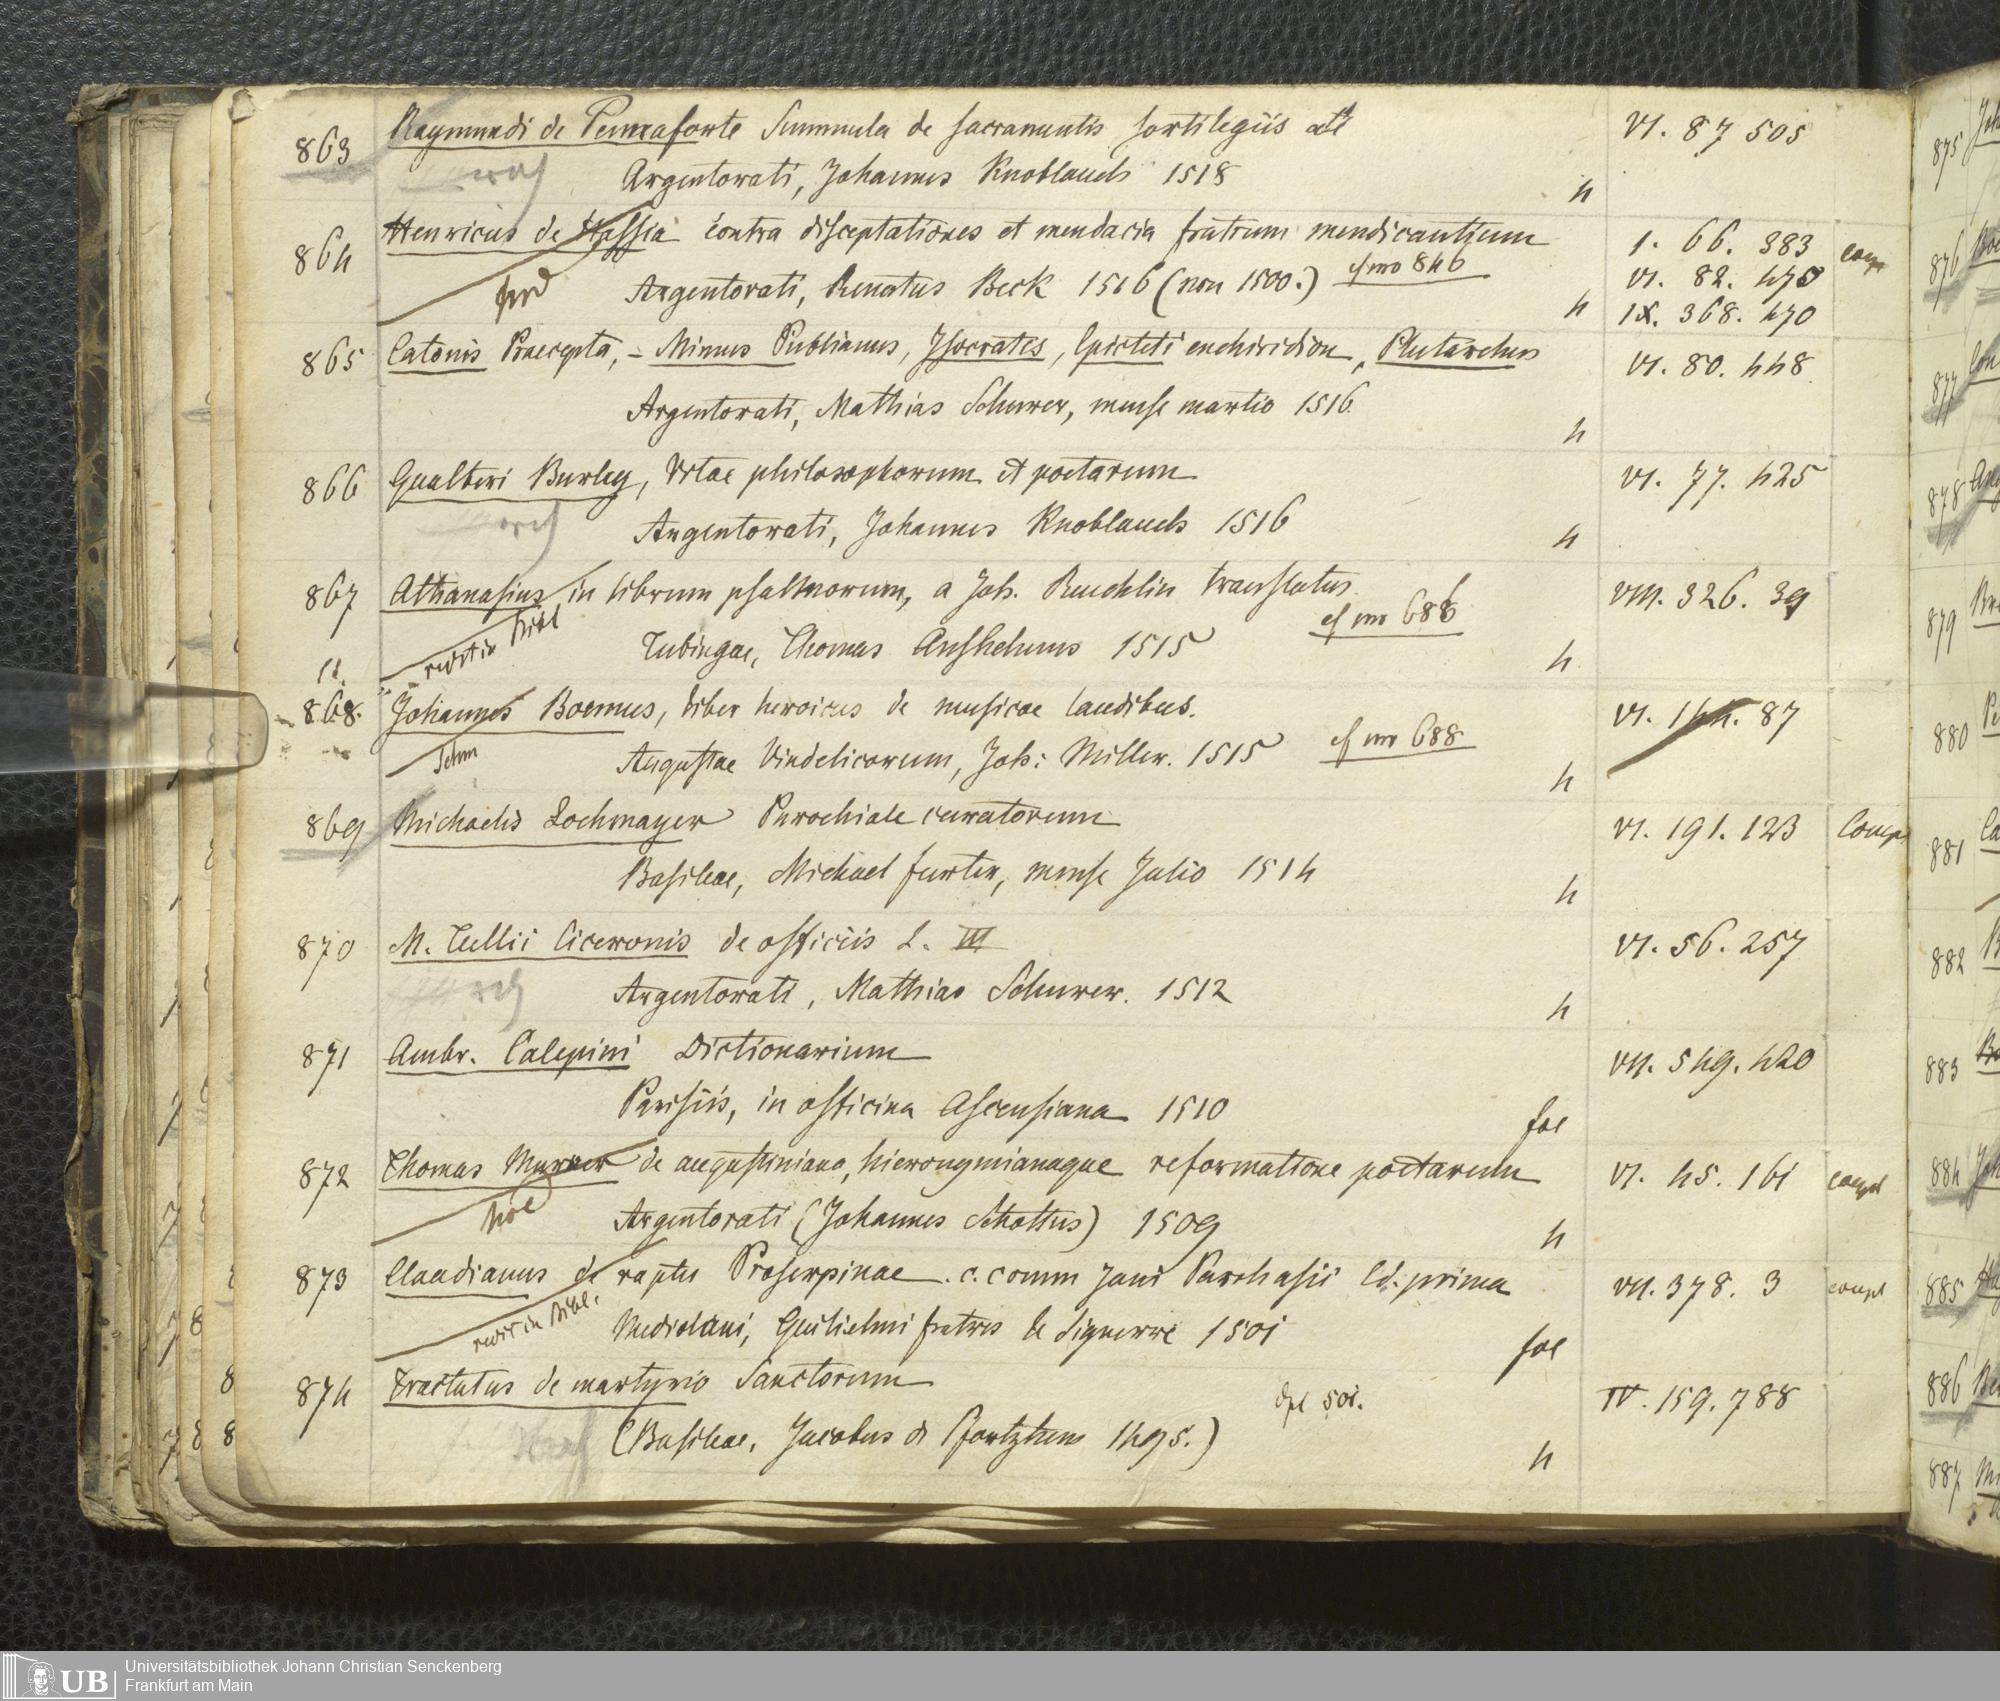 863 Raymundi de Pennaforte Summula de sacramentis sortilegiis etc VI. 87 505
Argentorati, Johannes Knoblauch 1518 4
864 Henricus de Hassia contra disceptationes et mendacia fratrum mendicantium I. 66. 383 compl
Argentorati, Renatus Beck 1516 (non 1500.) cf nro 846 VI. 82. 475
4 IX. 368. 470
865 Catonis Praecepta, – Mimus Publianus, Isocrates, Epicteti enchiridion, Plutarchus VI. 80. 448
Argentorati, Mathias Schurer, mense martio 1516. 4
866 Gualteri Burley, Vitae philosophorum et poetarum VI. 77. 425
Argentorati, Johannes Knoblauch 1516 4
867 Athanasius in librum psalmorum, a Joh. Reuchlin translatus. VIII. 326. 39
redit in Bibl
Tubingae, Thomas Anshelmus 1515 cf nro 686 4
868. Johannes Boemus, Liber heroicus de musicae laudibus. VI. 144. 87
Schm
Augustae Vindelicorum, Joh: Miller. 1515 cf nro 688 4
869 Michaelis Lochmayer Parochiale curatorum VI. 191. 123 Compl
Basileae, Michael furter, mense Julio 1514 4
870 M. Tullii Ciceronis de officiis L. III VI. 56. 257
Argentorati, Mathias Schurer. 1512 4
871 Ambr. Calepini Dictionarium VII. 549. 420
Parisiis, in officina Ascensiana 1510 fol
872 Thomas Murner de augustiniana, hieronymianaque reformatione poetarum VI. 45. 161 compl
Argentorati (Johannes Schottus) 1509 4
873 Claudianus de raptu Proserpinae. c. comm Jani Parrhasii Ed. prima VII. 378. 3 compl
redit in Bibl.
Mediolani, Guilielmi fratres le Signerre 1501 fol
874 Tractatus de martyrio Sanctorum IV. 159. 788
dpl 501.
(Basileae, Jacobus de Pfortzhem 1495.) 4
875
876
877
878
879
880
881
882
883
884
885
886
887
UB Universitätsbibliothek Johann Christian Senckenberg
Frankfurt am Main